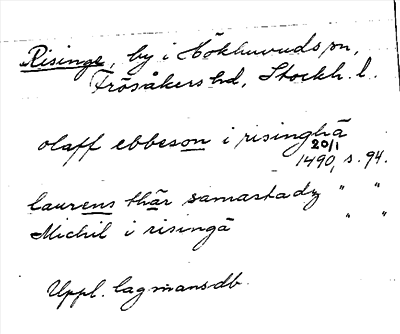 Risinge, by i Hökhuvuds sn,
Frösåkers hd, Stockh. l.
olaff ebbeson i risinghä
20/1
1490, s. 94.
laurens thär samastädz " "
Michil i risingä " "
Uppl. lagmansdb.